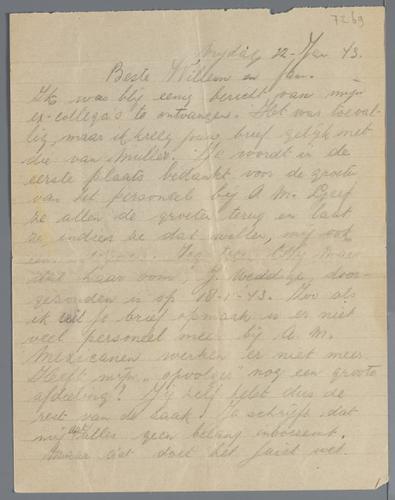 7269
Vrijdag, 22-Jan 43.
Beste Willem en Jan.
Ik was blij eenig bericht van mijn
ex-collega's te ontvangen. Het was toeval-
lig, maar ik kreeg jouw brief gelijk met
die van Muller. Je wordt in de
eerste plaats bedankt voor de groeten
van het personeel bij A. M. Geef
ze allen de groeten terug en laat
ze indien ze dat willen, mij ook
een
dat haar oom, J. door-
gezonden is op 18-1-'43. Zoo als
ik uit je brief opmerk is er niet
veel personeel meer bij A. M.
Mexicanen werken er niet meer.
Heeft mijn „opvolger" nog een groote
afdeeling? Jij zelf helpt dus de
rest van de zaak! Je schrijft dat
mij dat alles geen belang inboezemt.
Maar dat doet het juist wel.
1